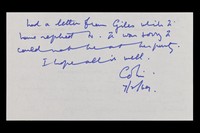 had a letter from Giles which I
have replied to. I was sorry I
could not be at her party.
I hope all is well.